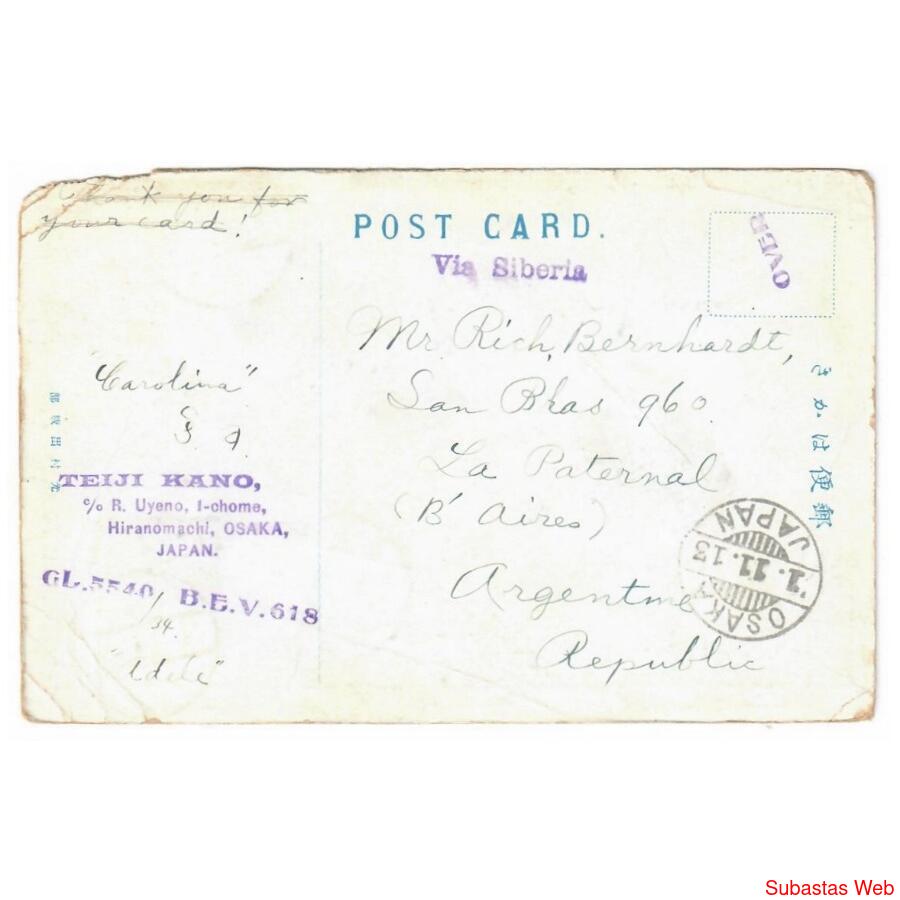 Thank you for
your card!
POST CARD.
Via Siberia
OVER
Mr. Rich. Bernhardt,
San Blas 960
La Paternal
(B' Aires)
Argentine
Republic
"Carolina"
TEIJI KANO,
c/o R. Uyeno, 1-chome,
Hiranomachi, OSAKA,
JAPAN.
GL.5540, B.E.V.618
34.
きかは便郵
OSAKA
1.11.13
JAPAN
Subastas Web